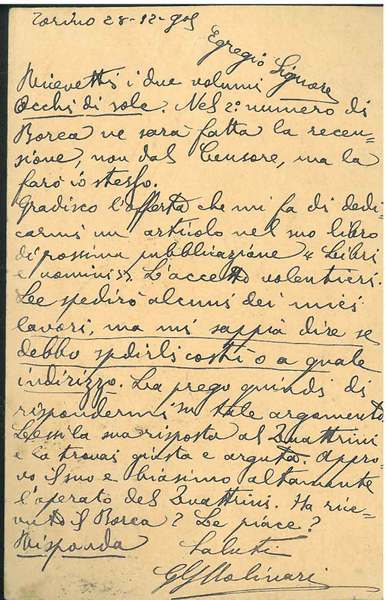 Torino 28-12-905
Egregio Signore
Ricevetti i due volumi
Occhi di sole. Nel 2° numero di
Borea ne sarà fatta la recen-
sione, non dal Censore, ma la
farò io stesso.
Gradisco l'offerta che mi fa di dedi-
carmi un articolo nel suo libro
di prossima pubblicazione « Libri
e uomini ». L'accetto volentieri.
Le spedirò alcuni dei miei
lavori, ma mi sappia dire se
debbo spedirli costì o a quale
indirizzo. La prego quindi di
rispondermi su tale argomento
Lessi la sua risposta al Quattrini
e la trovai giusta e arguta. Appro
vo il suo e biasimo altamente
l'operato del Quattrini. Ha rice-
vuto il Borea? Le piace?
Risponda Saluti
Molinari